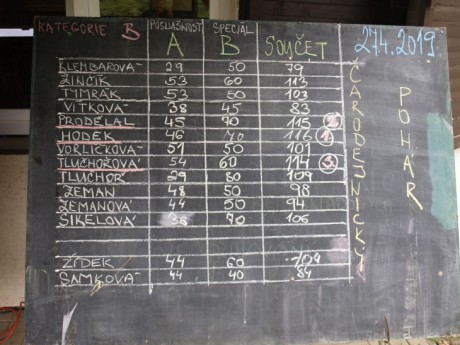 KATEGORIE B
POSLUŠNOST A
SPECIÁL B
SOUČET
27.4.2019
KLEMBAROVÁ 29 50 79
ŽINČÍK 53 60 113
TYMRÁK 53 50 103
VÍTKOVÁ 38 45 83
PRODĚLAL 45 70 115 2
HODEK 46 70 116 1
VORLÍČKOVÁ 51 50 101
TLUCHOŘOVÁ 54 60 114 3
TLUCHOŘ 29 80 109
ZEMAN 48 50 98
ZEMANOVÁ 44 50 94
SIKELOVÁ 36 70 106
ŽÍDEK 44 60 104
SAMKOVÁ 44 40 84
ČARODEJNICKÝ
POHÁR